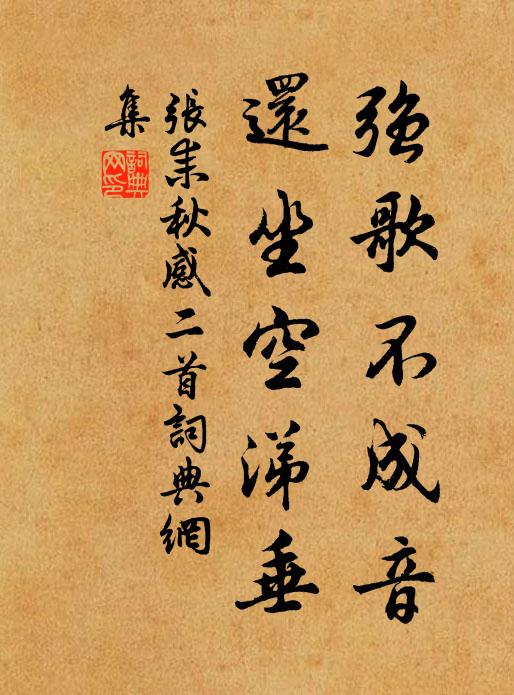 強歌不成音
還坐空涕垂
張耒秋感二首詞典網
集
詞典
网印